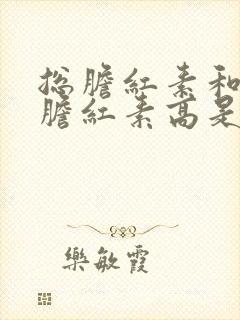 总膽紅素和
膽紅素高是
樂敏霞